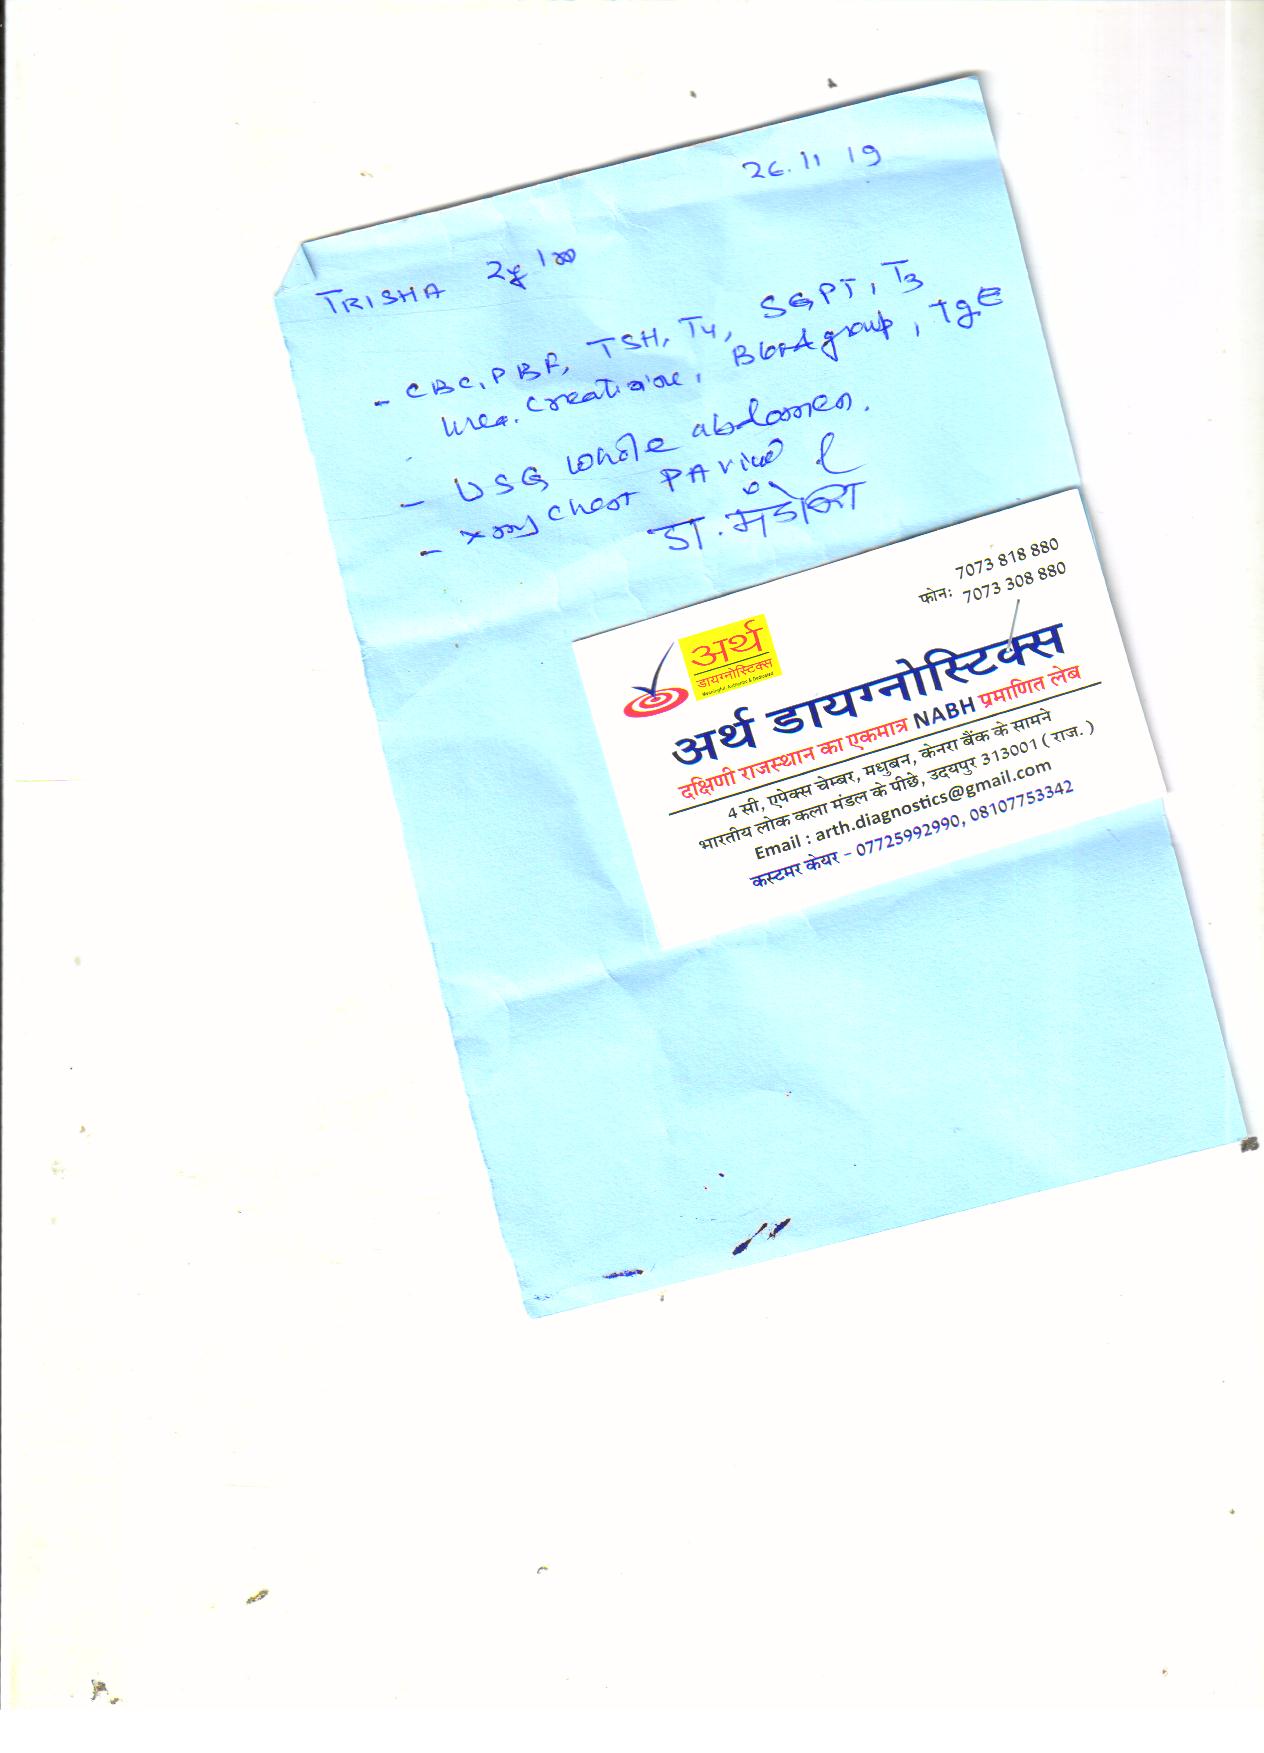 26.11 19
TRISHA 2y
- CBC, PBF, TSH, T4, SGPT, T3
Urea. Creatinine, Blood group, IgE
- USG whole abdomen.
- xray Chest PA view
डा.
7073 818 880
फोन: 7073 308 880
अर्थ
डायग्नोस्टिक्स
Meaningful, Authentic & Dedicated
अर्थ डायग्नोस्टिक्स
दक्षिणी राजस्थान का एकमात्र NABH प्रमाणित लेब
4 सी, एपेक्स चेम्बर, मधुबन, केनरा बैंक के सामने
भारतीय लोक कला मंडल के पीछे, उदयपुर 313001 ( राज. )
Email : arth.diagnostics@gmail.com
कस्टमर केयर – 07725992990, 08107753342